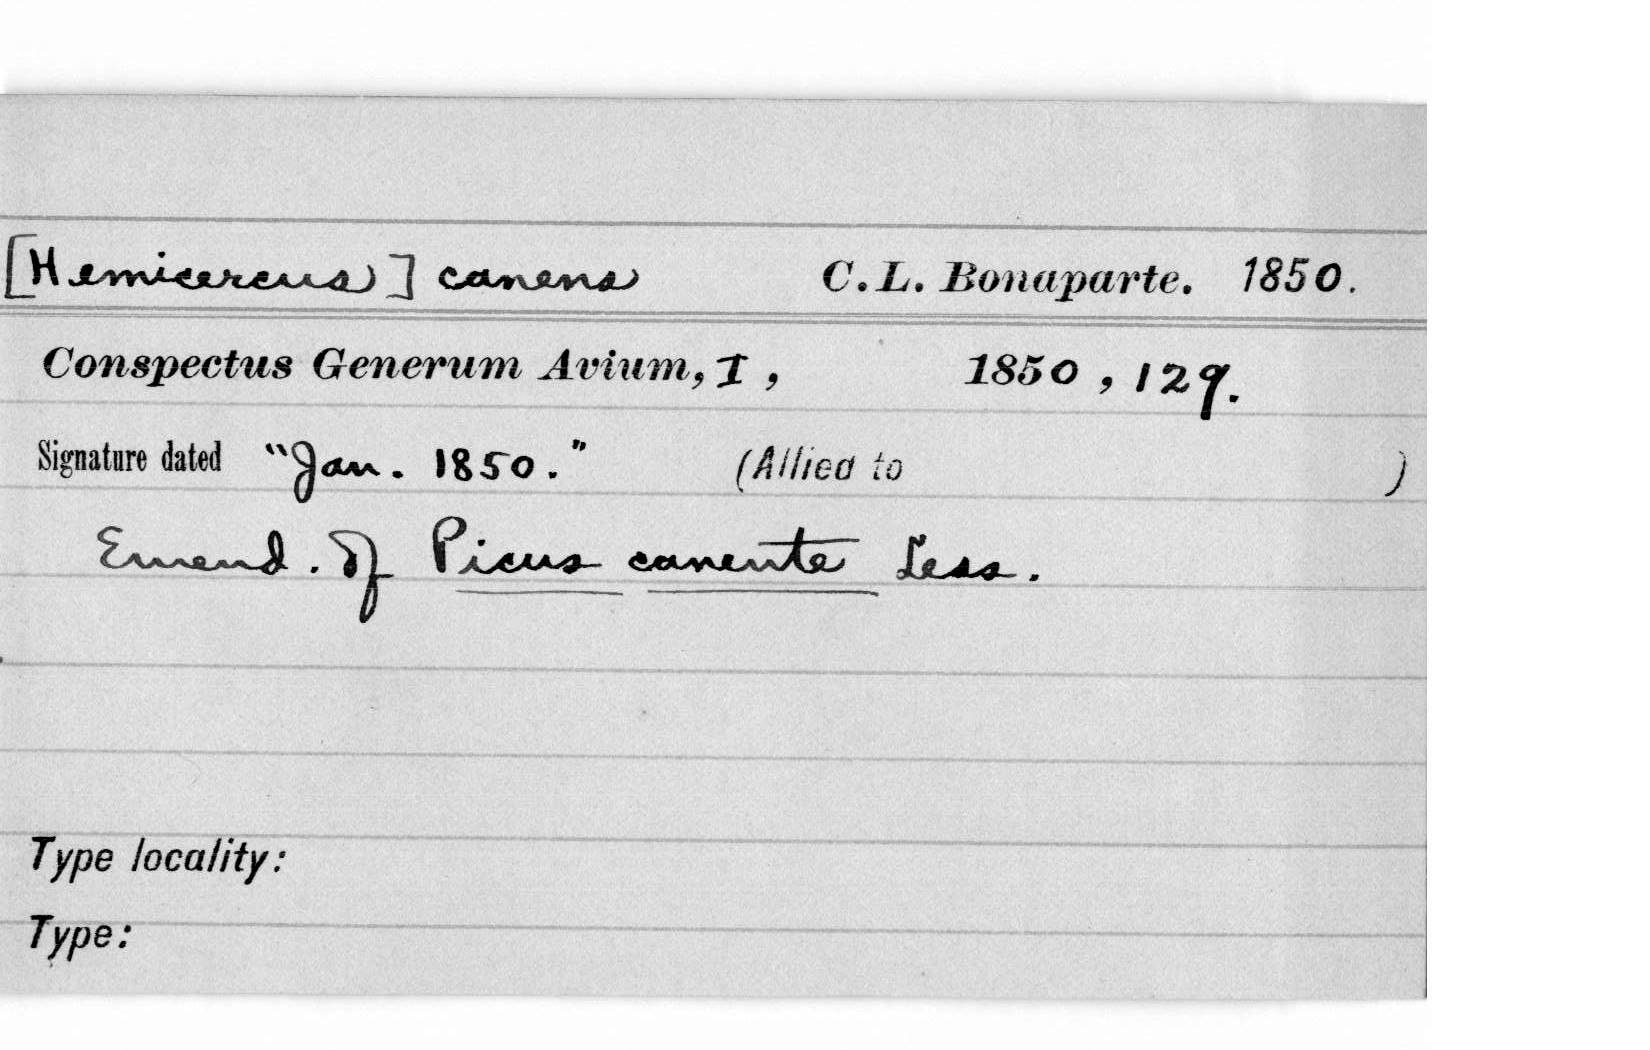 [Hemicercus] canens C. L. Bonaparte. 1850.
Conspectus Generum Avium, I, 1850, 129.
Signature dated "Jan. 1850." (Allied to )
Emend. of Picus canente Less.
Type locality:
Type: